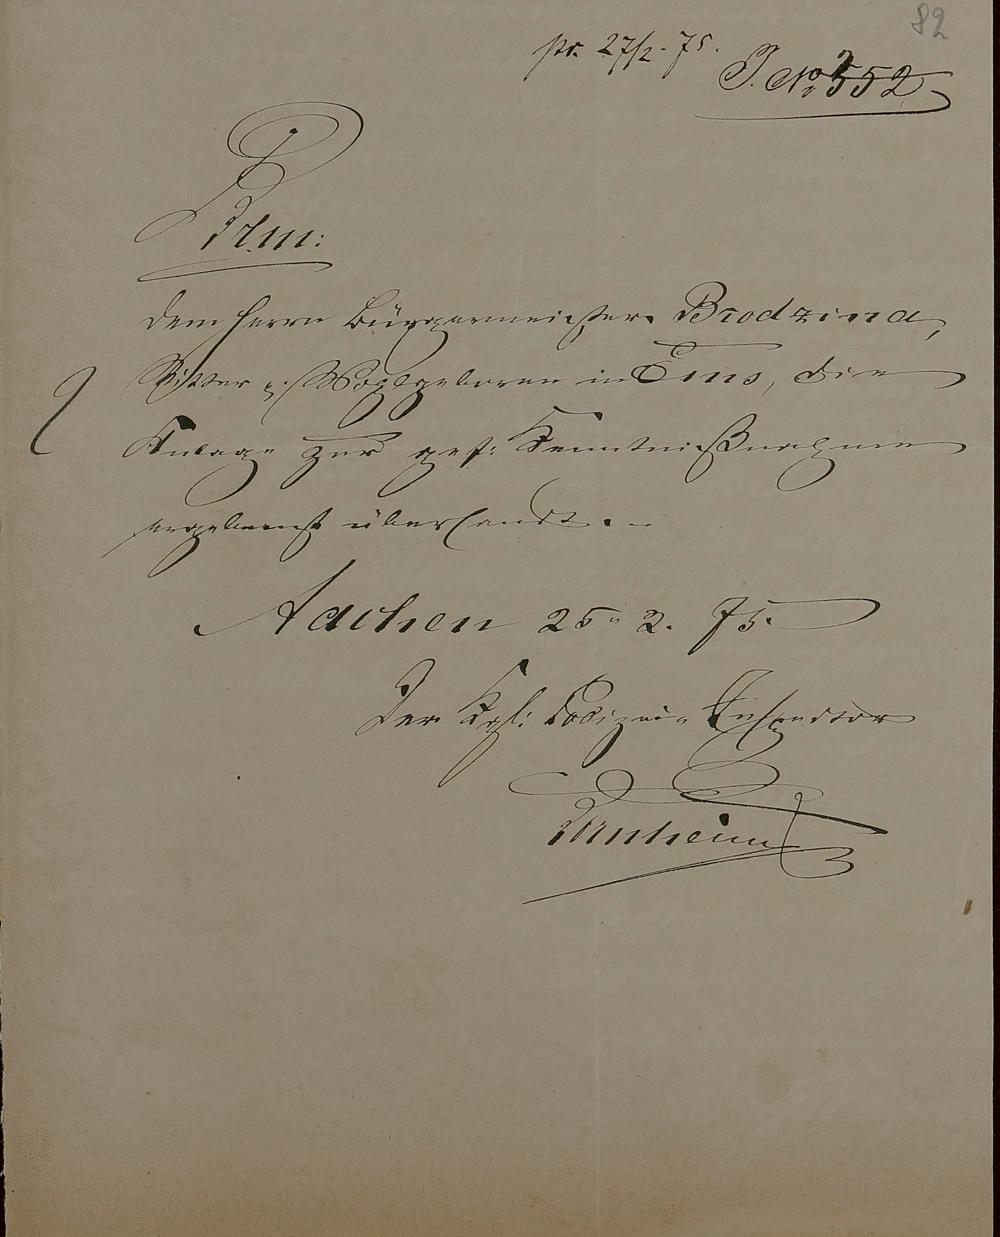 82
pr. 27/2. 75.
J. No 552
B. m:
dem Herrn Bürgermeister Brodzina,
Ritter p. Wohlgeboren in Ems, die
Anlage zur gef: Kenntnißnahme
ergebenst übersandt. -
Aachen 25. 2. 75.
Der Kgl: Polizei-Inspector
Dornheim